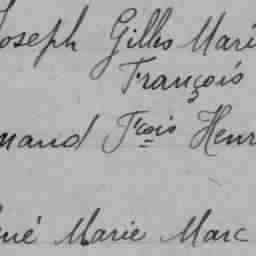 Joseph Gilles Mari
François
mand Fçois Henr
ené Marie Marc